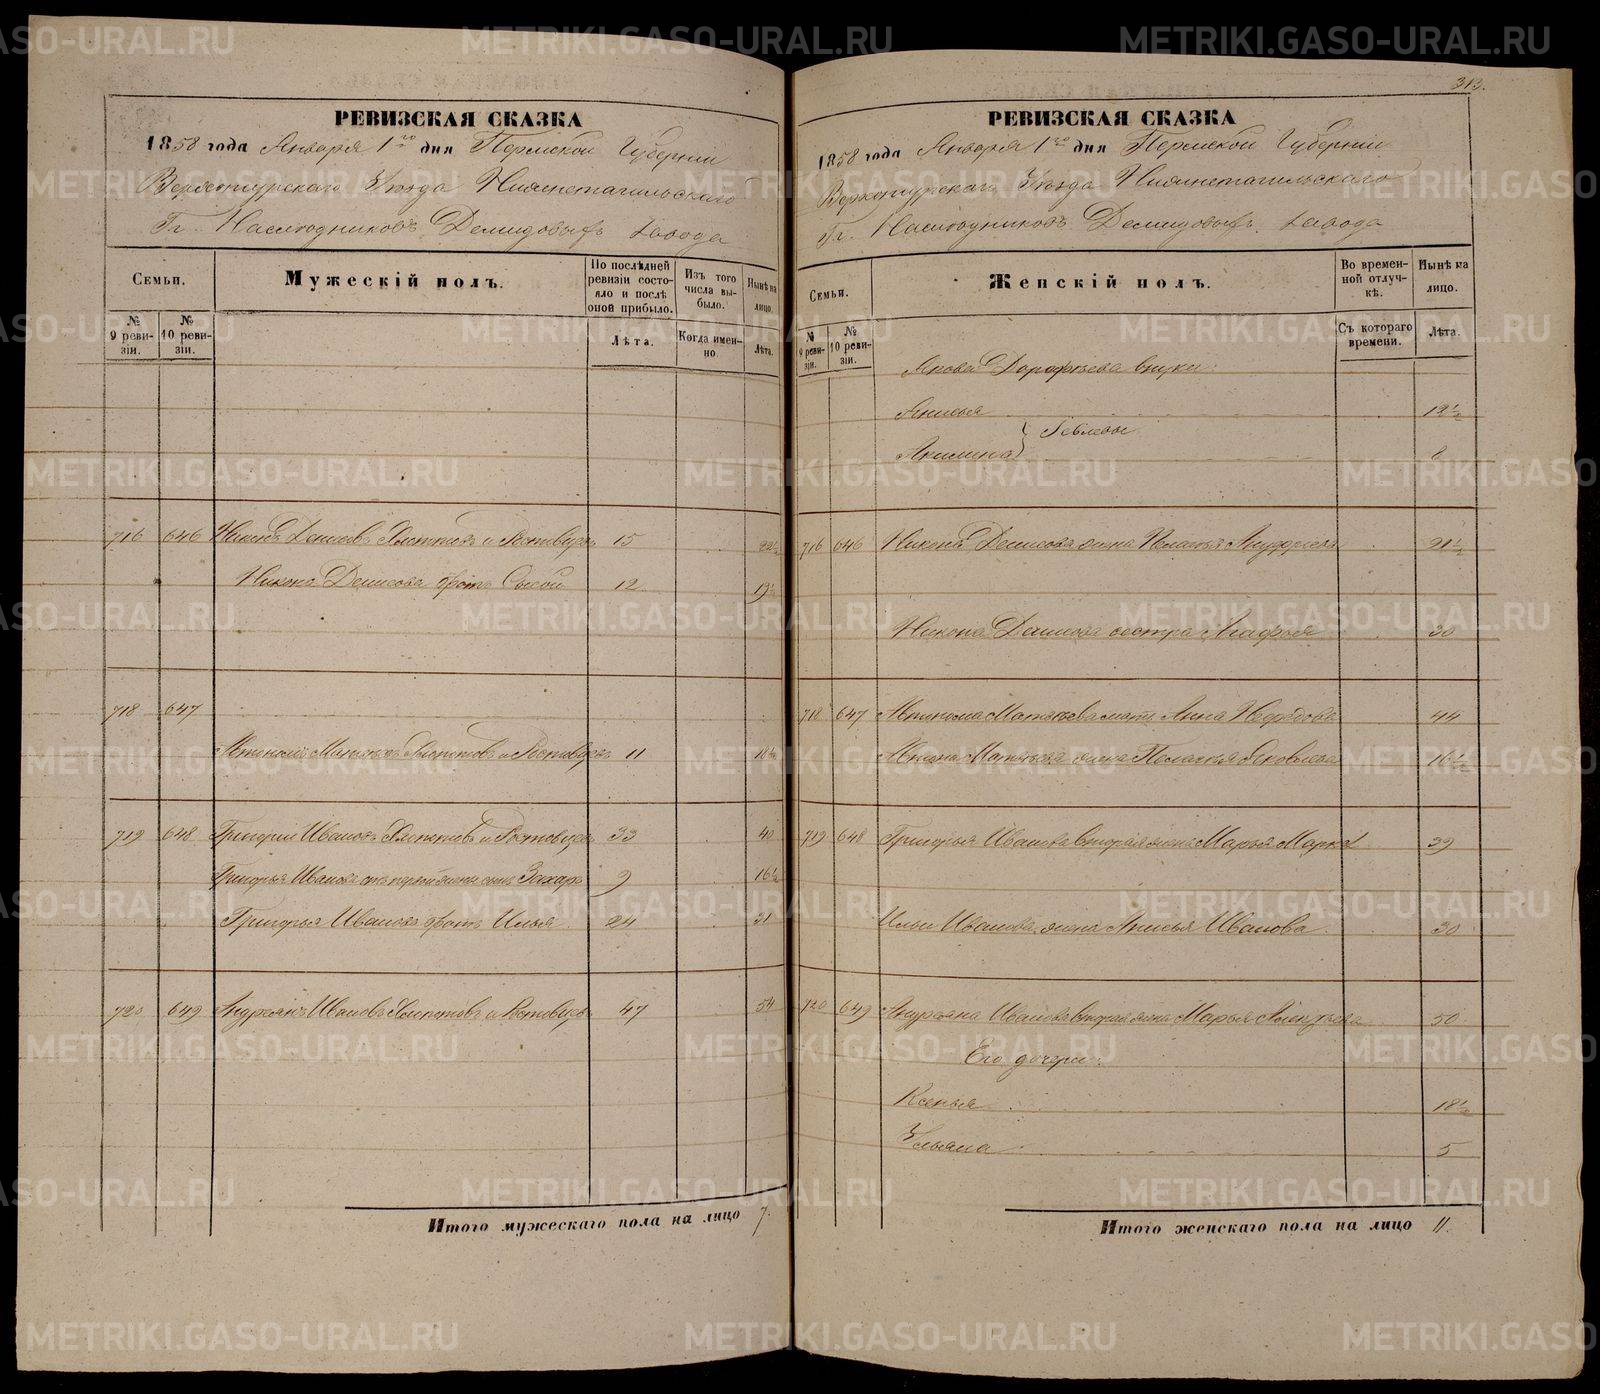 METRIKI.GASO-URAL.RU
РЕВИЗСКАЯ СКАЗКА
1858 года Января 1го дня Пермской Губерніи
Верхотурскаго Уѣзда Нижнетагильскаго
Гг. Наслѣдниковъ Демидовыхъ завода
Семьи.
Мужескій полъ.
По послѣдней ревизіи состояло и послѣ оной прибыло.
Изъ того числа выбыло.
Нынѣ на лицо.
№ 9 ревизіи.
№ 10 ревизіи.
Лѣта.
Когда именно.
Лѣта.
716 646 Никонъ Денисовъ и 15 22½
Никона Денисова братъ Сысой 12 19½
718 647
Матвѣевъ и 11 18½
719 648 Григорій Ивановъ и 33 40
Григорья Иванова отъ первой жены сынъ Захаръ 9 16½
Григорья Иванова братъ Илья 24 31
720 649 Андреянъ Ивановъ и 47 54
Итого мужескаго пола на лицо 7.
313.
РЕВИЗСКАЯ СКАЗКА
1858 года Января 1го дня Пермской Губерніи
Верхотурскаго Уѣзда Нижнетагильскаго
Гг. Наслѣдниковъ Демидовыхъ завода
Семьи.
Женскій полъ.
Во временной отлучкѣ.
Нынѣ на лицо.
№ 9 ревизіи.
№ 10 ревизіи.
Съ котораго времени.
Лѣта.
Якова Дорофѣева внуки:
Анисья 12½
Іевлевы
Акилина 8
716 646 Никона Денисова жена Пелагья 21½
Никона Денисова сестра Агафья 30
718 647 Матвѣева мать Анна 44
Матвѣева жена Пелагья Яковлева 16½
719 648 Григорья Иванова вторая жена Марья 39
Ильи Иванова жена Анисья Иванова 30
720 649 Андреяна Иванова вторая жена Марья 50
Его дочери:
Ксенья 18½
Ульяна 5
Итого женскаго пола на лицо 11.